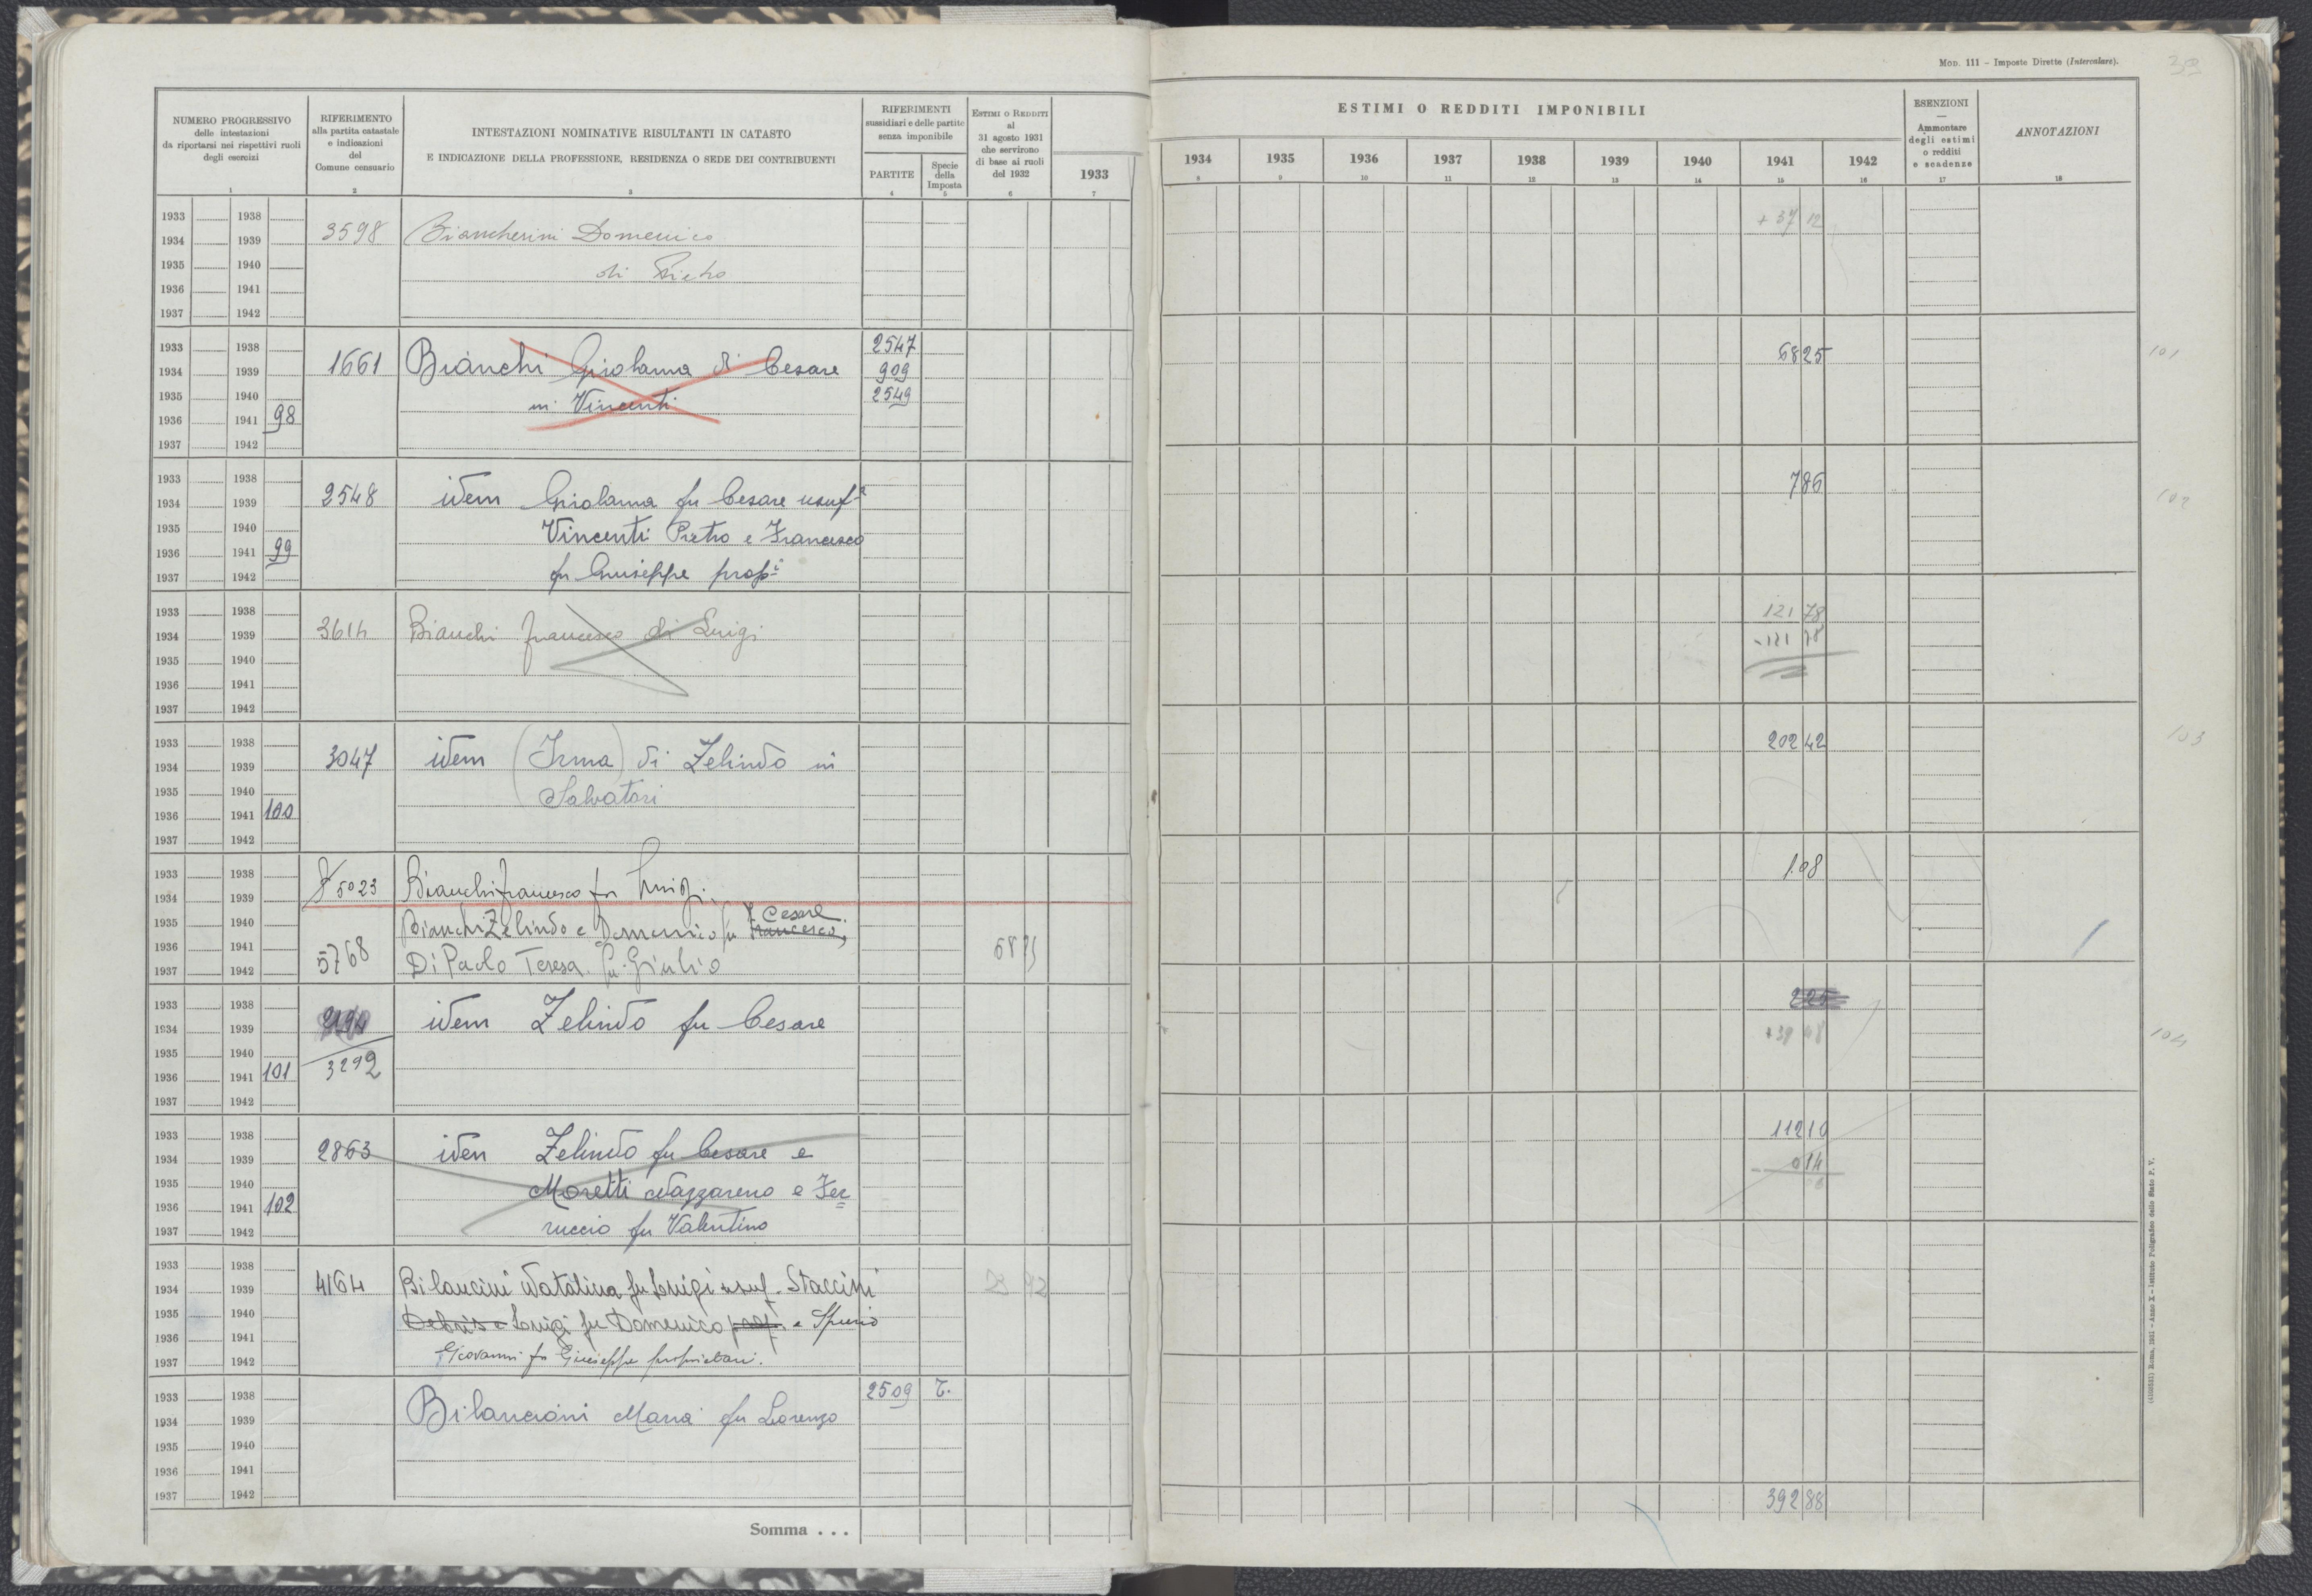 MOD. 111 - Imposte Dirette (Intercalare).
39
NUMERO PROGRESSIVO
delle intestazioni
da riportarsi nei rispettivi ruoli
degli esercizi
1
RIFERIMENTO
alla partita catastale
e indicazioni
del
Comune censuario
2
INTESTAZIONI NOMINATIVE RISULTANTI IN CATASTO
E INDICAZIONE DELLA PROFESSIONE, RESIDENZA O SEDE DEI CONTRIBUENTI
3
RIFERIMENTI
sussidiari e delle partite
senza imponibile
PARTITE
4
Specie
della
Imposta
5
ESTIMI O REDDITI
al
31 agosto 1931
che servirono
di base ai ruoli
del 1932
6
1933
7
ESTIMI O REDDITI IMPONIBILI
1934 1935 1936 1937 1938 1939 1940 1941 1942
8 9 10 11 12 13 14 15 16
ESENZIONI
Ammontare
degli estimi
o redditi
e scadenze
17
ANNOTAZIONI
18
1933 1938
1934 1939 3598 Biancherini Domenico + 37 12
1935 1940 di Pietro
1936 1941
1937 1942
1933 1938 2547
1934 1939 1661 Bianchi Girolama di Cesare 909 68 25 101
1935 1940 in Vincenti 2549
1936 1941 98
1937 1942
1933 1938
1934 1939 2548 idem Girolama fu Cesare usufª 7 86 102
1935 1940 Vincenti Pietro e Francesco
1936 1941 99
1937 1942 fu Giuseppe propⁱ
1933 1938 121 78
1934 1939 3614 Bianchi Francesco di Luigi - 121 78
1935 1940
1936 1941
1937 1942
1933 1938 202 42 103
1934 1939 3047 idem (Irma) di Zelindo in
1935 1940 Salvatori
1936 1941 100
1937 1942
1933 1938 1.08
1934 1939 5023 Bianchi Francesco fu Luigi.
1935 1940 Bianchi Zelindo e Domenico fu Francesco, Cesare
1936 1941 5768 68
1937 1942 Di Paolo Teresa fu Giulio
1933 1938 2 25
1934 1939 idem Zelindo fu Cesare + 39 48 104
1935 1940
1936 1941 101 3292
1937 1942
1933 1938 112 10
1934 1939 2863 idem Zelindo fu Cesare e - 0 14
1935 1940 Moretti Nazzareno e Fer=
1936 1941 102
1937 1942 ruccio fu Valentino
1933 1938
1934 1939 4164 Bilancini Natalina fu Luigi usuf. Staccini
1935 1940 Luigi fu Domenico prop. e Spurio
1936 1941
1937 1942 Giovanni fu Giuseppe proprietari.
1933 1938 2509 T.
1934 1939 Bilancioni Maria fu Lorenzo
1935 1940
1936 1941
1937 1942 392 88
Somma . . .
(4103531) Roma, 1931 - Anno X - Istituto Poligrafico dello Stato P. V.